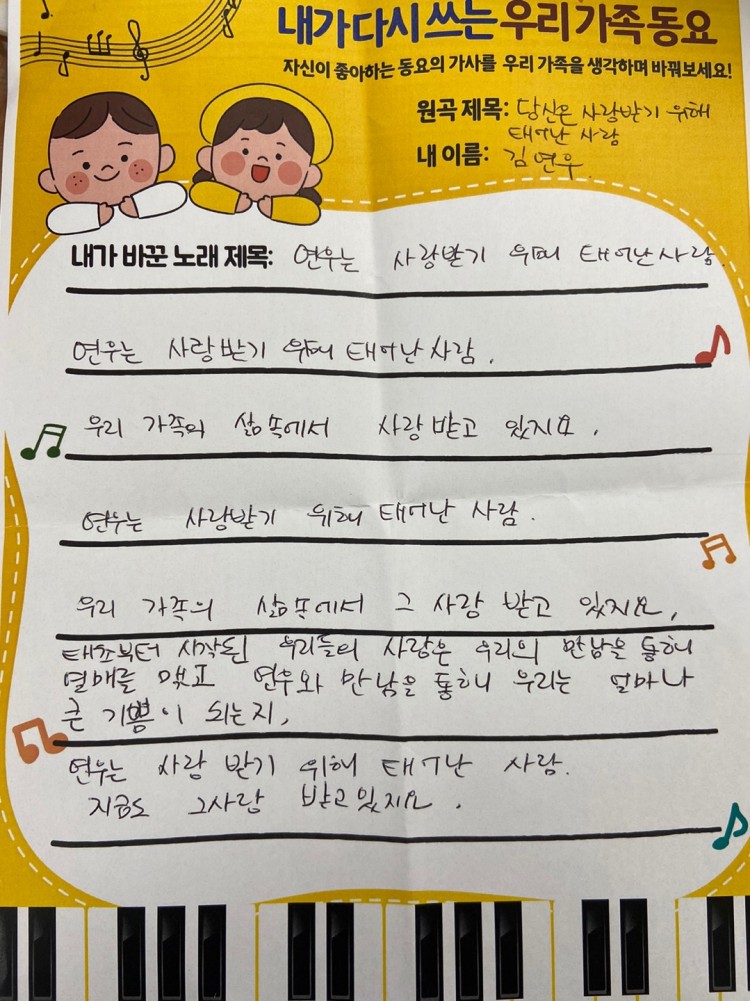 내가 다시 쓰는 우리 가족 동요
자신이 좋아하는 동요의 가사를 우리 가족을 생각하며 바꿔보세요!
원곡 제목: 당신은 사랑받기 위해
태어난 사람
내 이름: 김연우
내가 바꾼 노래 제목: 연우는 사랑받기 위해 태어난 사람.
연우는 사랑받기 위해 태어난 사람.
우리 가족의 삶 속에서 사랑 받고 있지요.
연우는 사랑받기 위해 태어난 사람.
우리 가족의 삶속에서 그 사랑 받고 있지요.
태초부터 시작된 우리들의 사랑은 우리의 만남을 통해
열매를 맺고 연우와 만남을 통해 우리는 얼마나
큰 기쁨이 되는지,
연우는 사랑 받기 위해 태어난 사람.
지금도 그사랑 받고있지요.